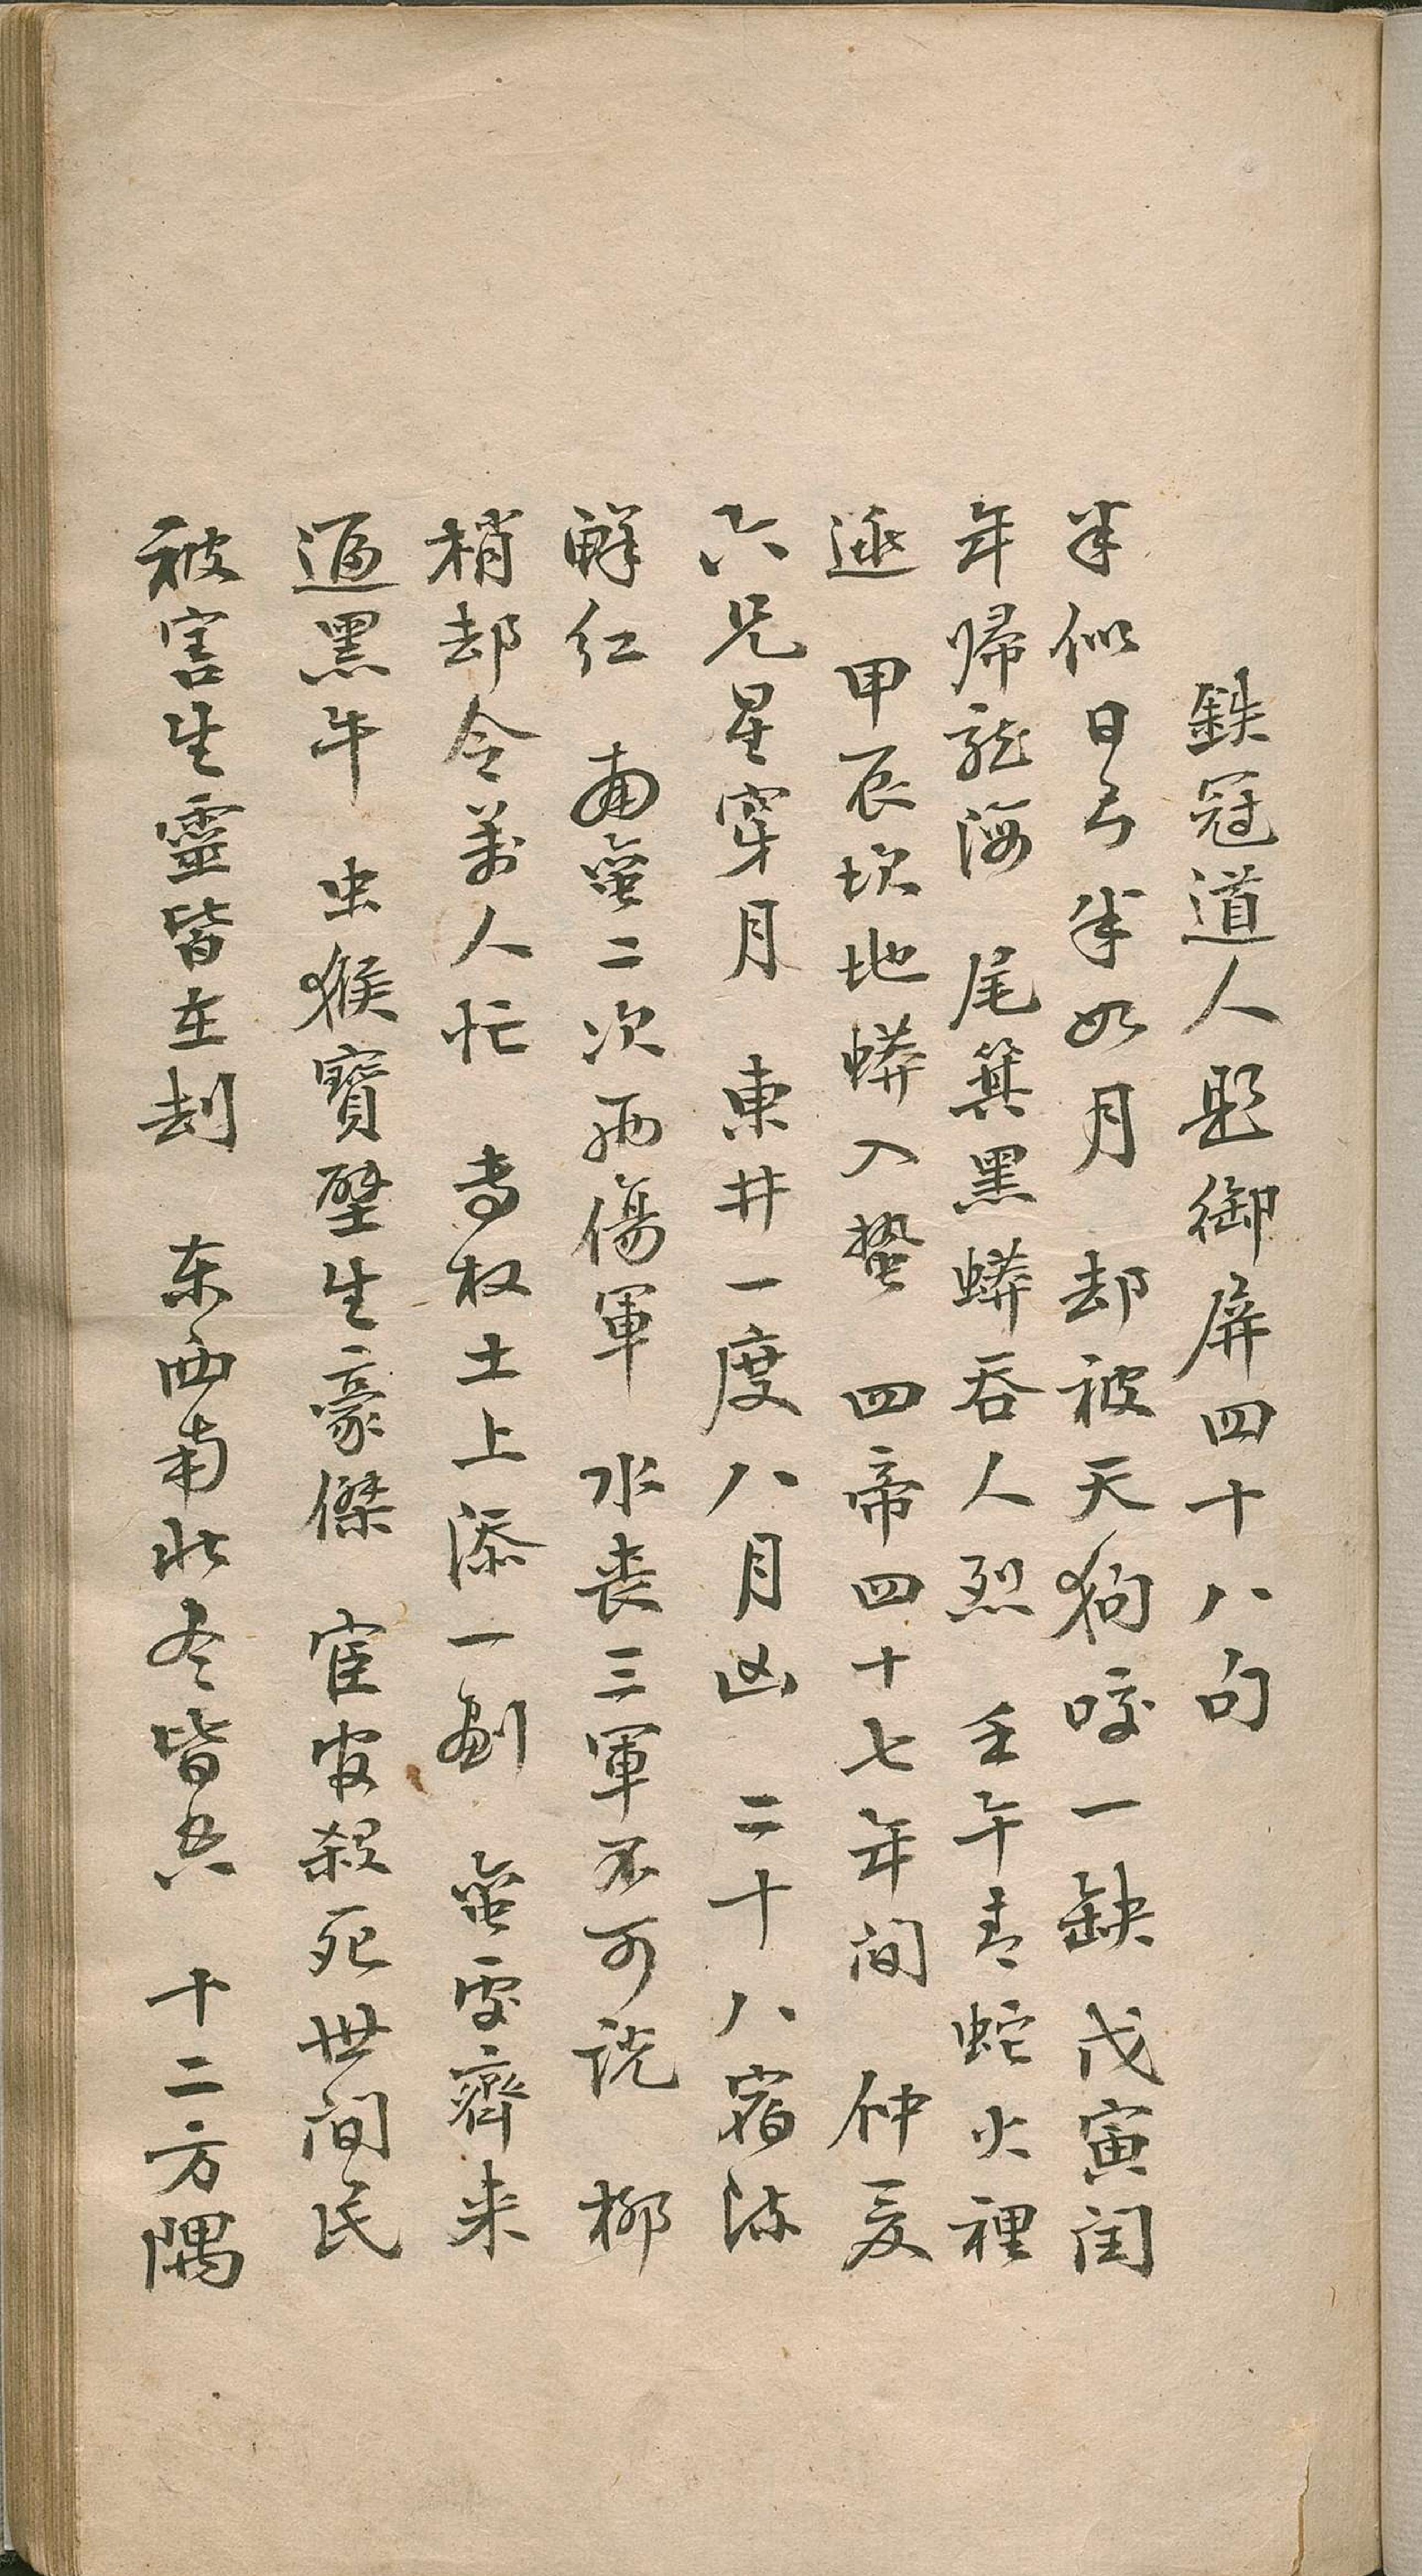 鉄冠道人題御屏四十八句
半似日兮半如月 却被天狗咬一缺 戊寅闰
年帰龍海 尾箕黑蟒吞人烈 壬午青蛇火裡
逃 甲辰坎地蟒入蛰 四帝四十七年间 仲夏
六兄星穿月 東井一度八月凶 二十八宿流
鮮红 南蛮二次西傷軍 水丧三軍不可说 柳
梢却令萬人忙 专权土上添一剑 蛮雯齊来
逼黑牛 虫猴寶璧生豪傑 宦官殺死世间民
被害生靈皆在刦 东西南北冬皆兵 十二方隅